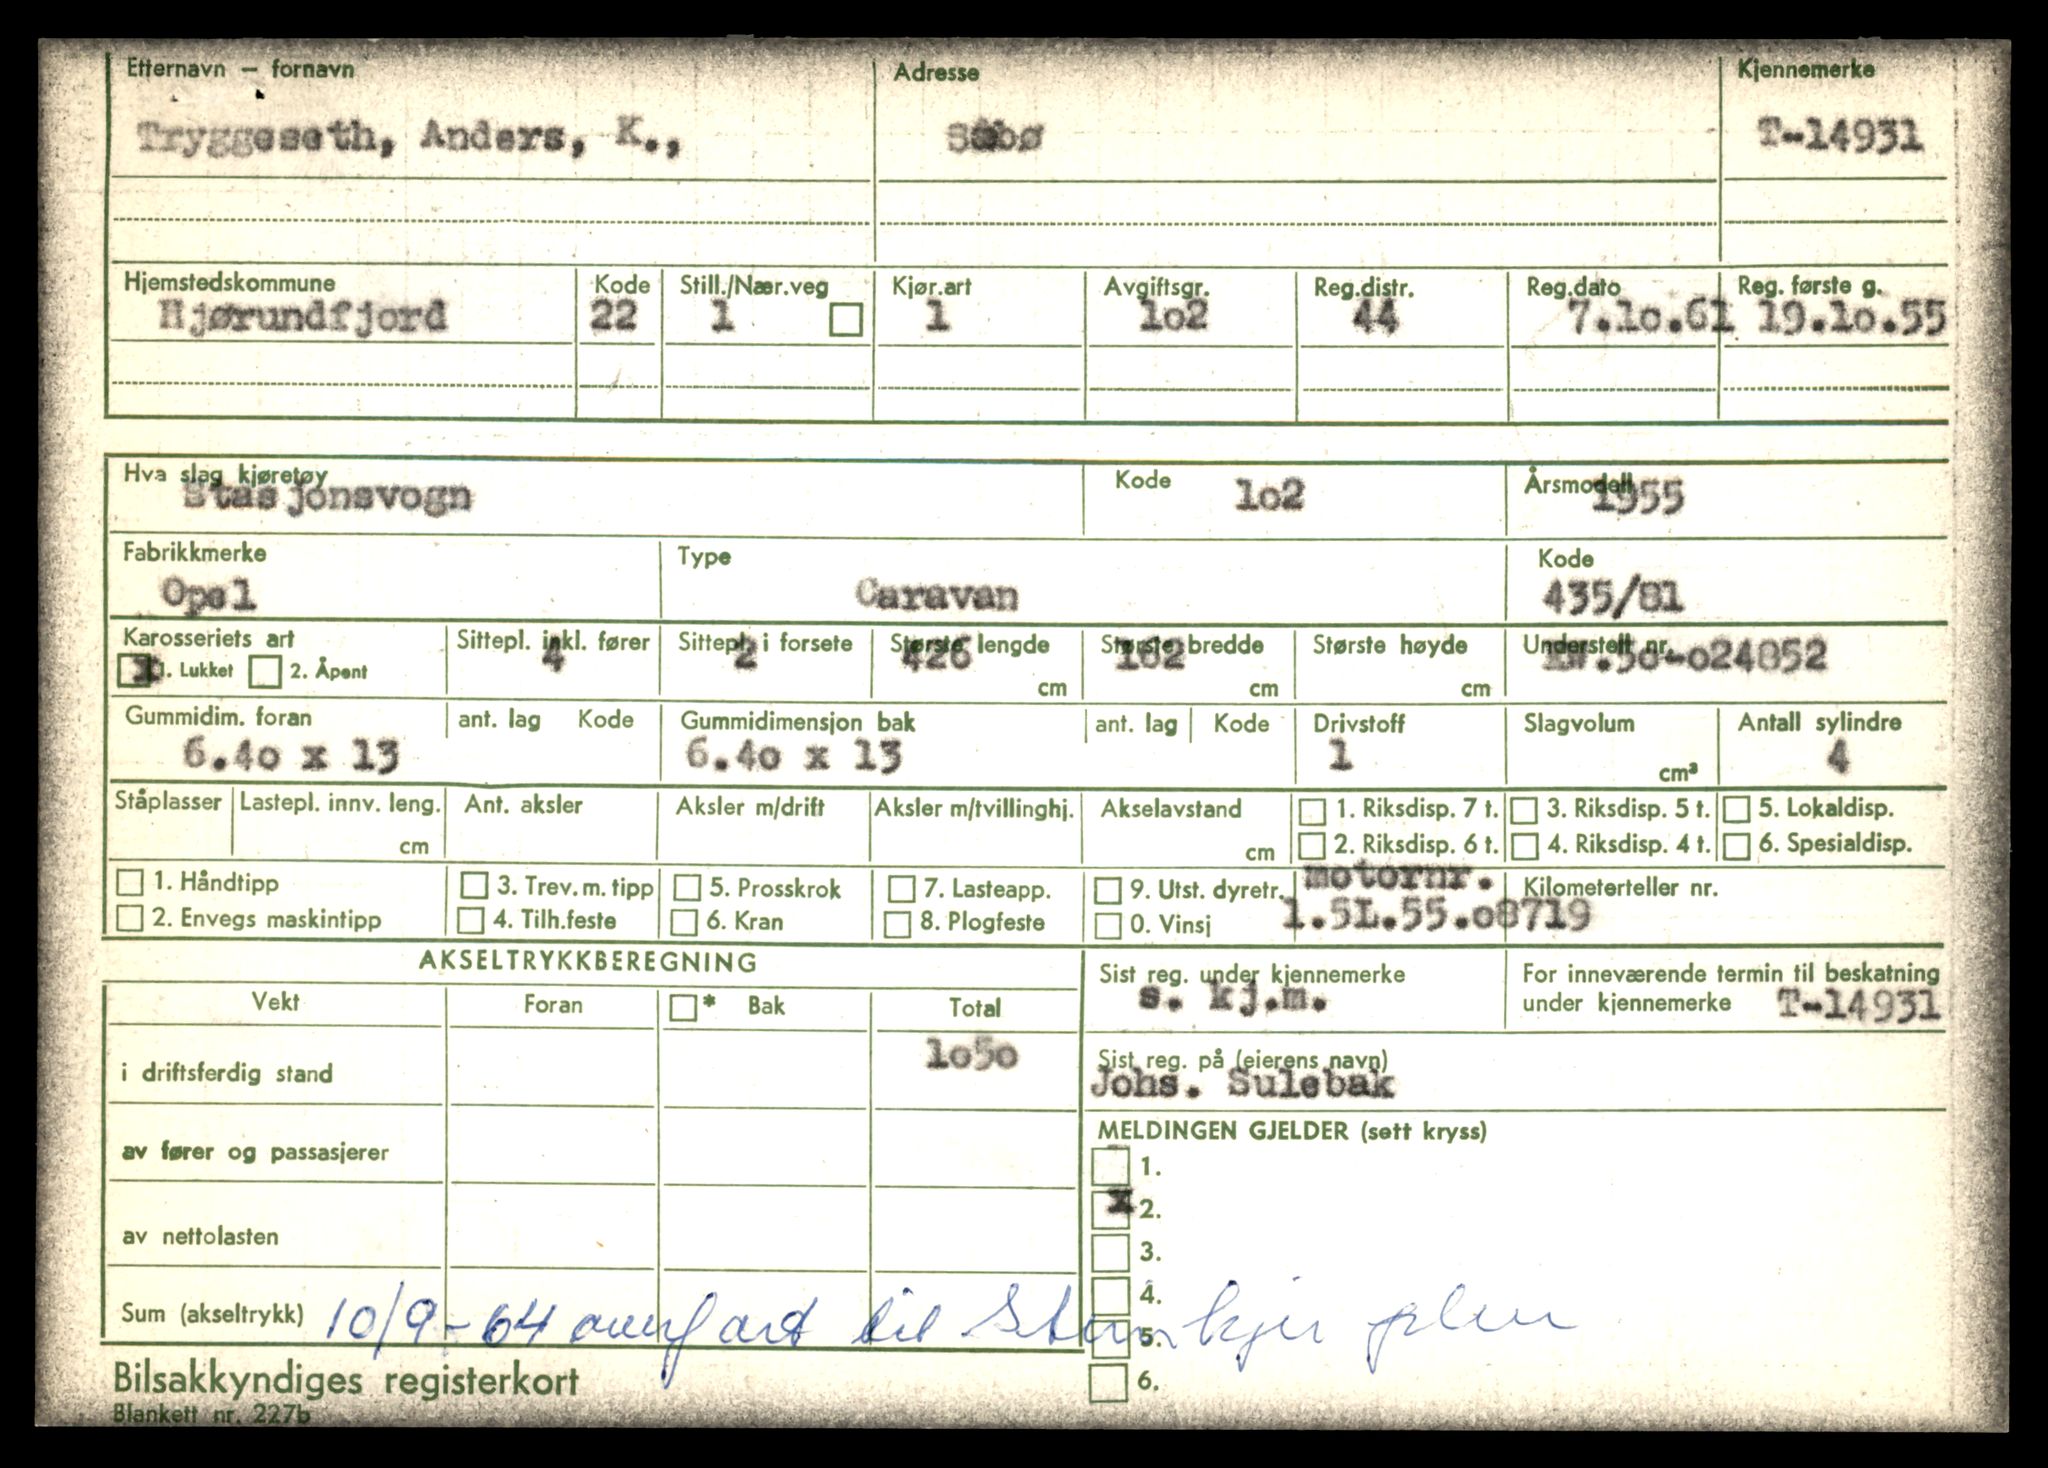 Etternavn – fornavn Adresse Kjennemerke
Tryggeseth, Anders, K., Sæbø T-14931
Hjemstedskommune Kode Still./Nær.veg Kjør.art Avgiftsgr. Reg.distr. Reg.dato Reg. første g.
Hjørundfjord 22 1 1 1o2 44 7.1o.61 19.1o.55
Hva slag kjøretøy Kode Årsmodell
Stasjonsvogn 1o2 1955
Fabrikkmerke Type Kode
Opel Caravan 435/81
Karosseriets art Sittepl. inkl. fører Sittepl. i forsete Største lengde Største bredde Største høyde Understell nr.
x 1. Lukket 2. Åpent 4 2 426 cm 162 cm cm KW.56-o24852
Gummidim. foran ant. lag Kode Gummidimensjon bak ant. lag Kode Drivstoff Slagvolum Antall sylindre
6.4o x 13 6.4o x 13 1 cm³ 4
Ståplasser Lastepl. innv. leng. Ant. aksler Aksler m/drift Aksler m/tvillinghj. Akselavstand 1. Riksdisp. 7 t. 3. Riksdisp. 5 t. 5. Lokaldisp.
cm cm 2. Riksdisp. 6 t. 4. Riksdisp. 4 t. 6. Spesialdisp.
1. Håndtipp 3. Trev. m. tipp 5. Prosskrok 7. Lasteapp. 9. Utst. dyretr. motornr. Kilometerteller nr.
2. Envegs maskintipp 4. Tilh.feste 6. Kran 8. Plogfeste 0. Vinsj 1.5L.55.o8719
AKSELTRYKKBEREGNING Sist reg. under kjennemerke For inneværende termin til beskatning
Vekt Foran * Bak Total s. kj.m. under kjennemerke T-14931
i driftsferdig stand 1o5o Sist reg. på (eierens navn)
Johs. Sulebak
av fører og passasjerer MELDINGEN GJELDER (sett kryss)
1.
x 2.
av nettolasten 3.
4.
Sum (akseltrykk) 10/9-64 overført til Steinkjer 5.
6.
Bilsakkyndiges registerkort
Blankett nr. 227b